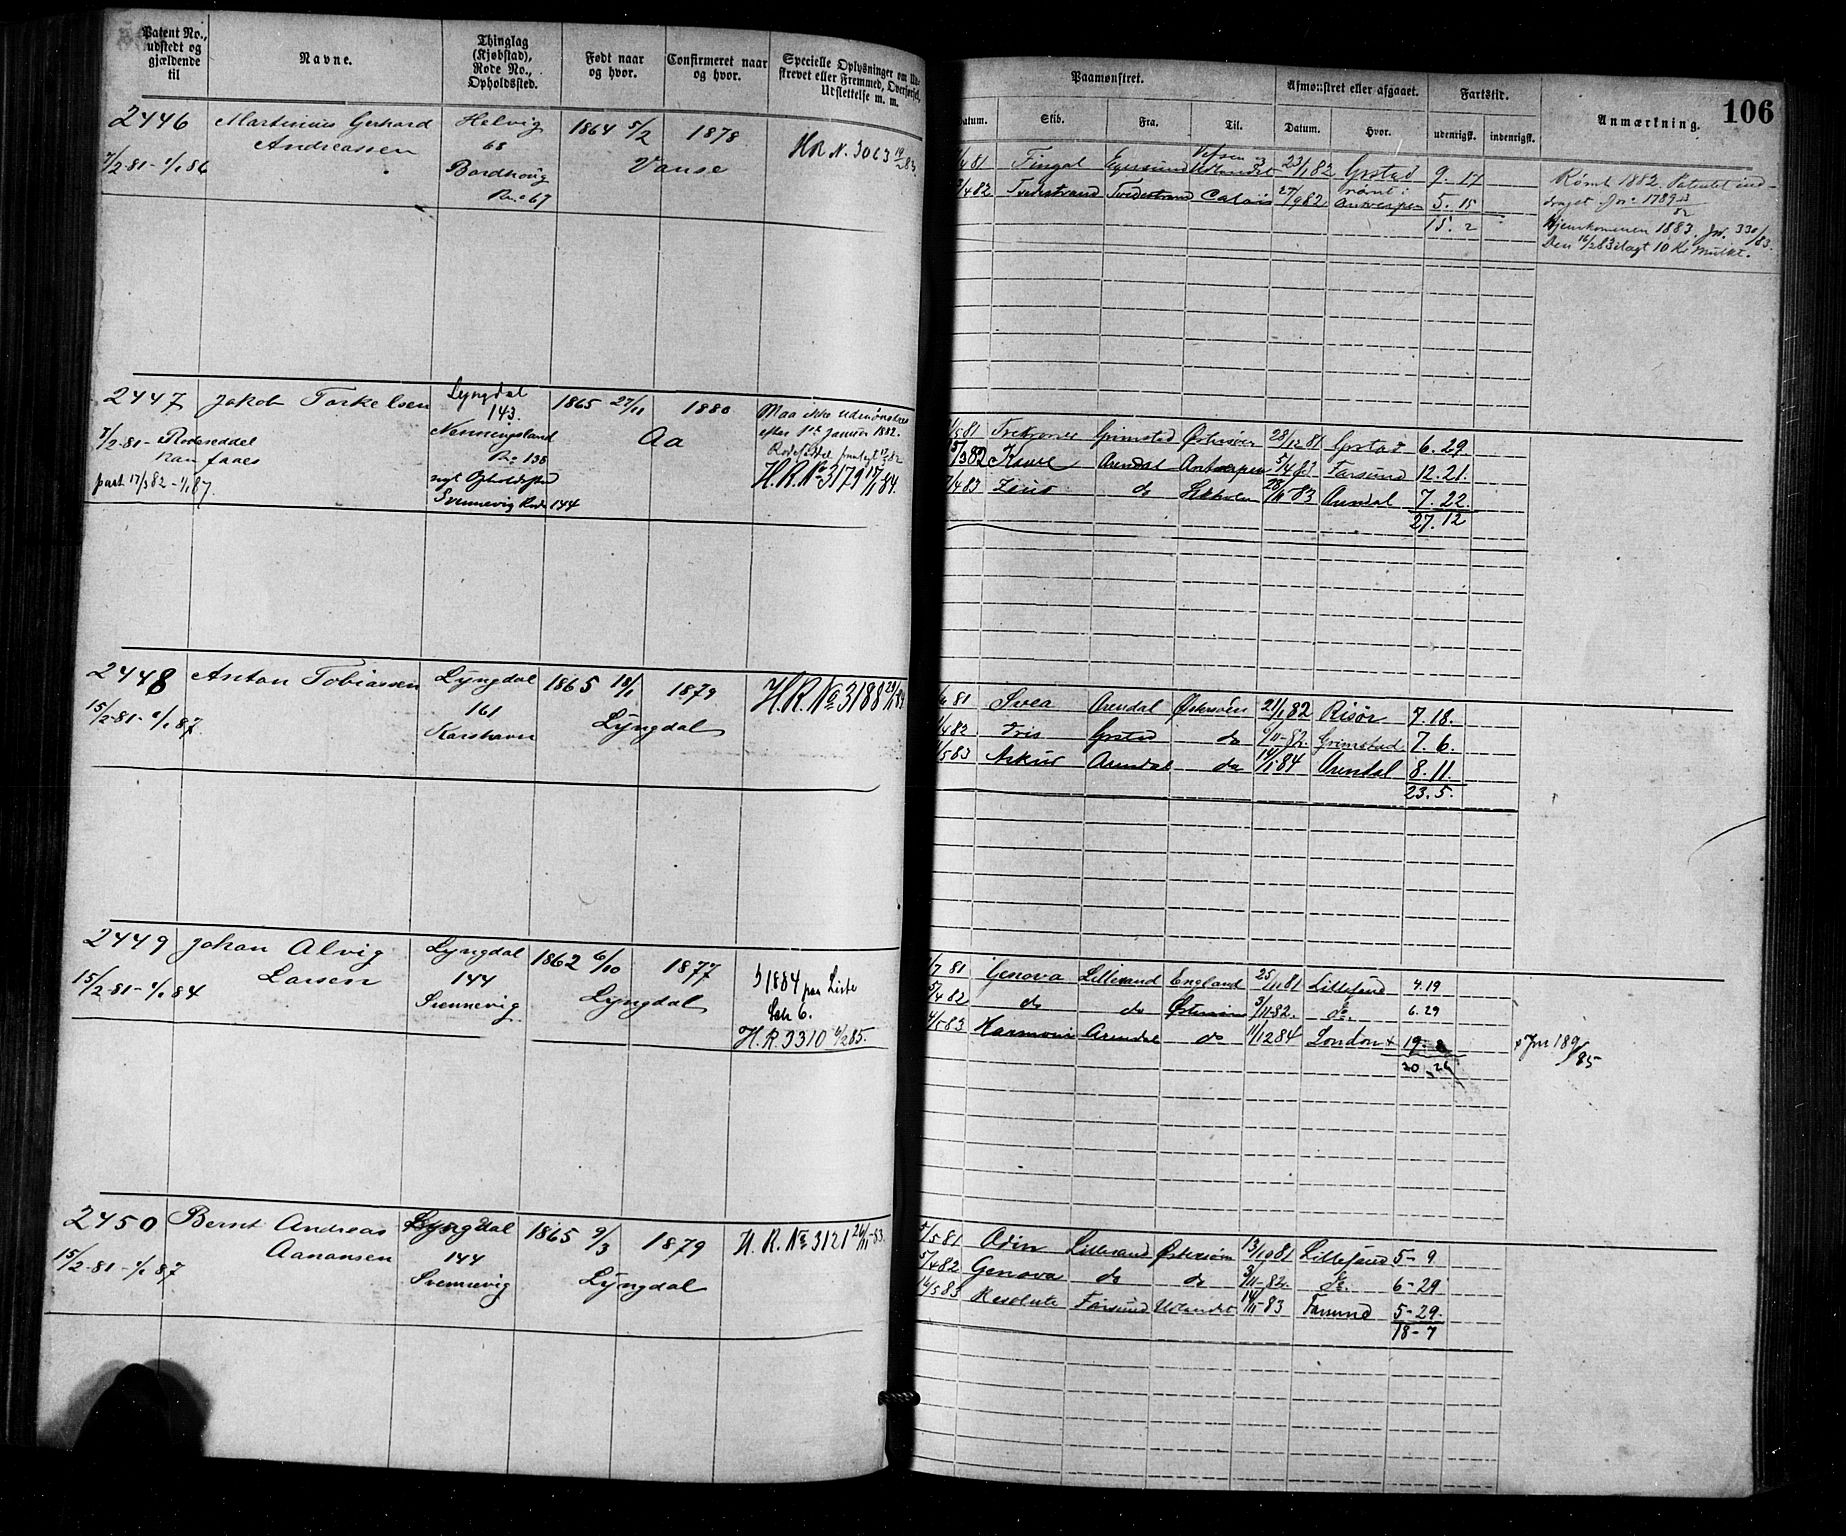 Patent No., udstedt og gjældende til
Navne.
Thinglag (Kjøbstad), Rode No., Opholdssted.
Født naar og hvor.
Confirmeret naar og hvor.
Specielle Oplysninger om Udskrevet eller Fremmed, Overførsel, Udslettelse m. m.
Paamønstret.
Afmønstret eller afgaaet.
Fartstid.
Anmærkning.
106
Datum. Skib. Fra. Til. Datum. Hvor. udenrigst. indenrigst.
2446 Martinius Gerhard Helvig 1864 5/2 1878
Andreassen 68 Vanse
7/2-81-1/1 86 Bordhoug
No 67
/4 81 Fingal Egersund 23/1 82 Grstad 9. 17
/4 82 Tvedestrand Tvedestrand Calais 27/9 82 rømt i Antwerpen 5. 15
15. 2
Rømt 1882. Patentet ind-
draget. Jno 1789
Hjemkommen 1883. Jno. 330/83.
Den 16/2 83 ilagt 10 Kr Mulkt.
2447 Jakob Torkelsen Lyngdal 1865 27/11 1880 Maa ikke udmønstres
143. efter 1st Januar 1882.
7/2-81- Rodeseddel Nenningsland Aa
kan faaes No 138 H.R. No 3179 17/1 84.
part 17/3 82-1/1 87. nyt Opholdssted
Svennevig Rode 144
/5 81 Trekroner Grimstad Østersøen 28/12 81 Grstad 6. 29
/3 82 Arendal Antwerpen 5/4 83 Farsund 12. 21.
/4 83 Zeus do 28/11 83 Arendal 7. 22
27. 12
2448 Anton Tobiassen Lyngdal 1865 18/1 1879 H.R. No 3188 29/1 84
161 Lyngdal
15/2-81-1/1 87. Korshavn
/6 81 Svea Arendal Østersøen 21/1 82 Risør 7. 18.
/4 82 Iris Grstad do 6/11-82. Grimstad 7. 6.
/5 83 Arendal do 14/1-84 Arendal 8. 11.
23. 5.
2449 Johan Alvig Lyngdal 1862 6/10 1877
Larsen 144 Lyngdal 1884 paa Liste
15/2-81-1/1 84 Svennevig 6.
H.R. 3310 6/2 85.
/7 81 Genova Lillesand England 25/11 81 Lillesand 4. 19
5/4 82 do do Østersøen 3/11-82. do. 6. 29
/5 83 Arendal do 11/12 84 London + 19-
+ Jno 189/85
2450 Bernt Andreas Lyngdal 1865 9/3 1879 H.R. No 3121 26/11-83.
Aanansen 144
15/2-81-1/1 87 Svennevig Lyngdal
5/5 81 Odin Lillesand Østersøen 13/10 81 Lillesand 5-9
5/4 82 Genova do do 3/11-82. do. 6-29
16/5 83 Resolute Farsund Udlandet 14/11-83 Farsund 5-29.
18-7